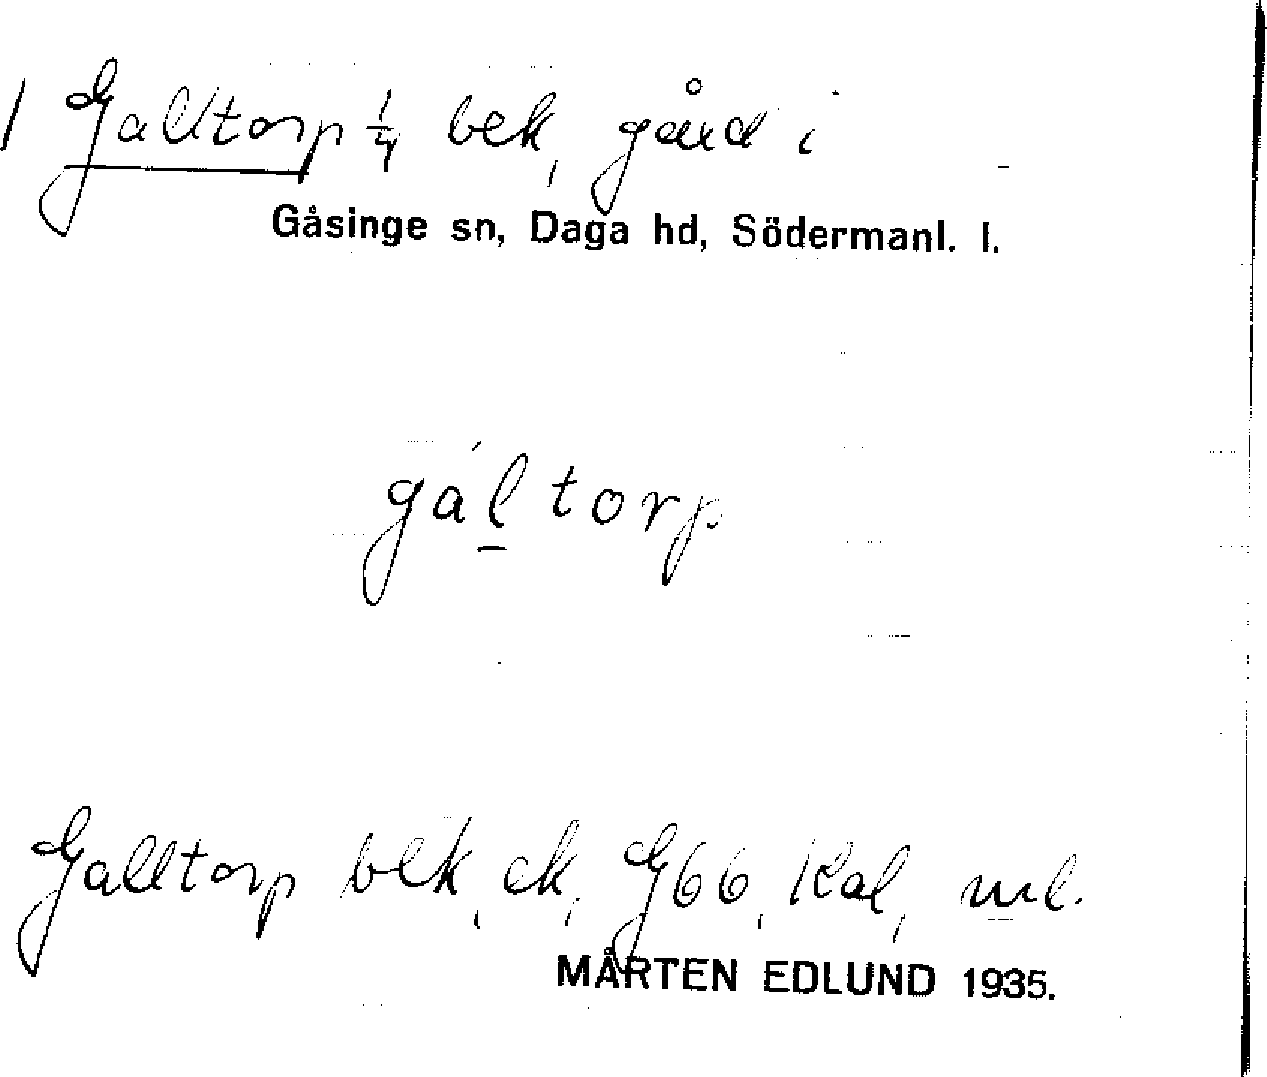 1 Galltorp ¼ bek, gård i
Gåsinge sn, Daga hd, Södermanl. l.
gáltorp
Galltorp bek, ek, G66, Kal, ml.
MÅRTEN EDLUND 1935.